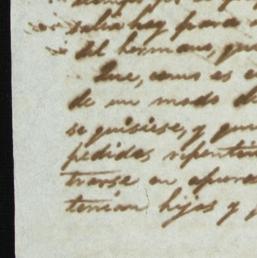 salia hoy para
del hermano, que
Que, como es
de un modo de
se quisiese, y que
pedidos repentin
trarse en apura
tenian hijos y